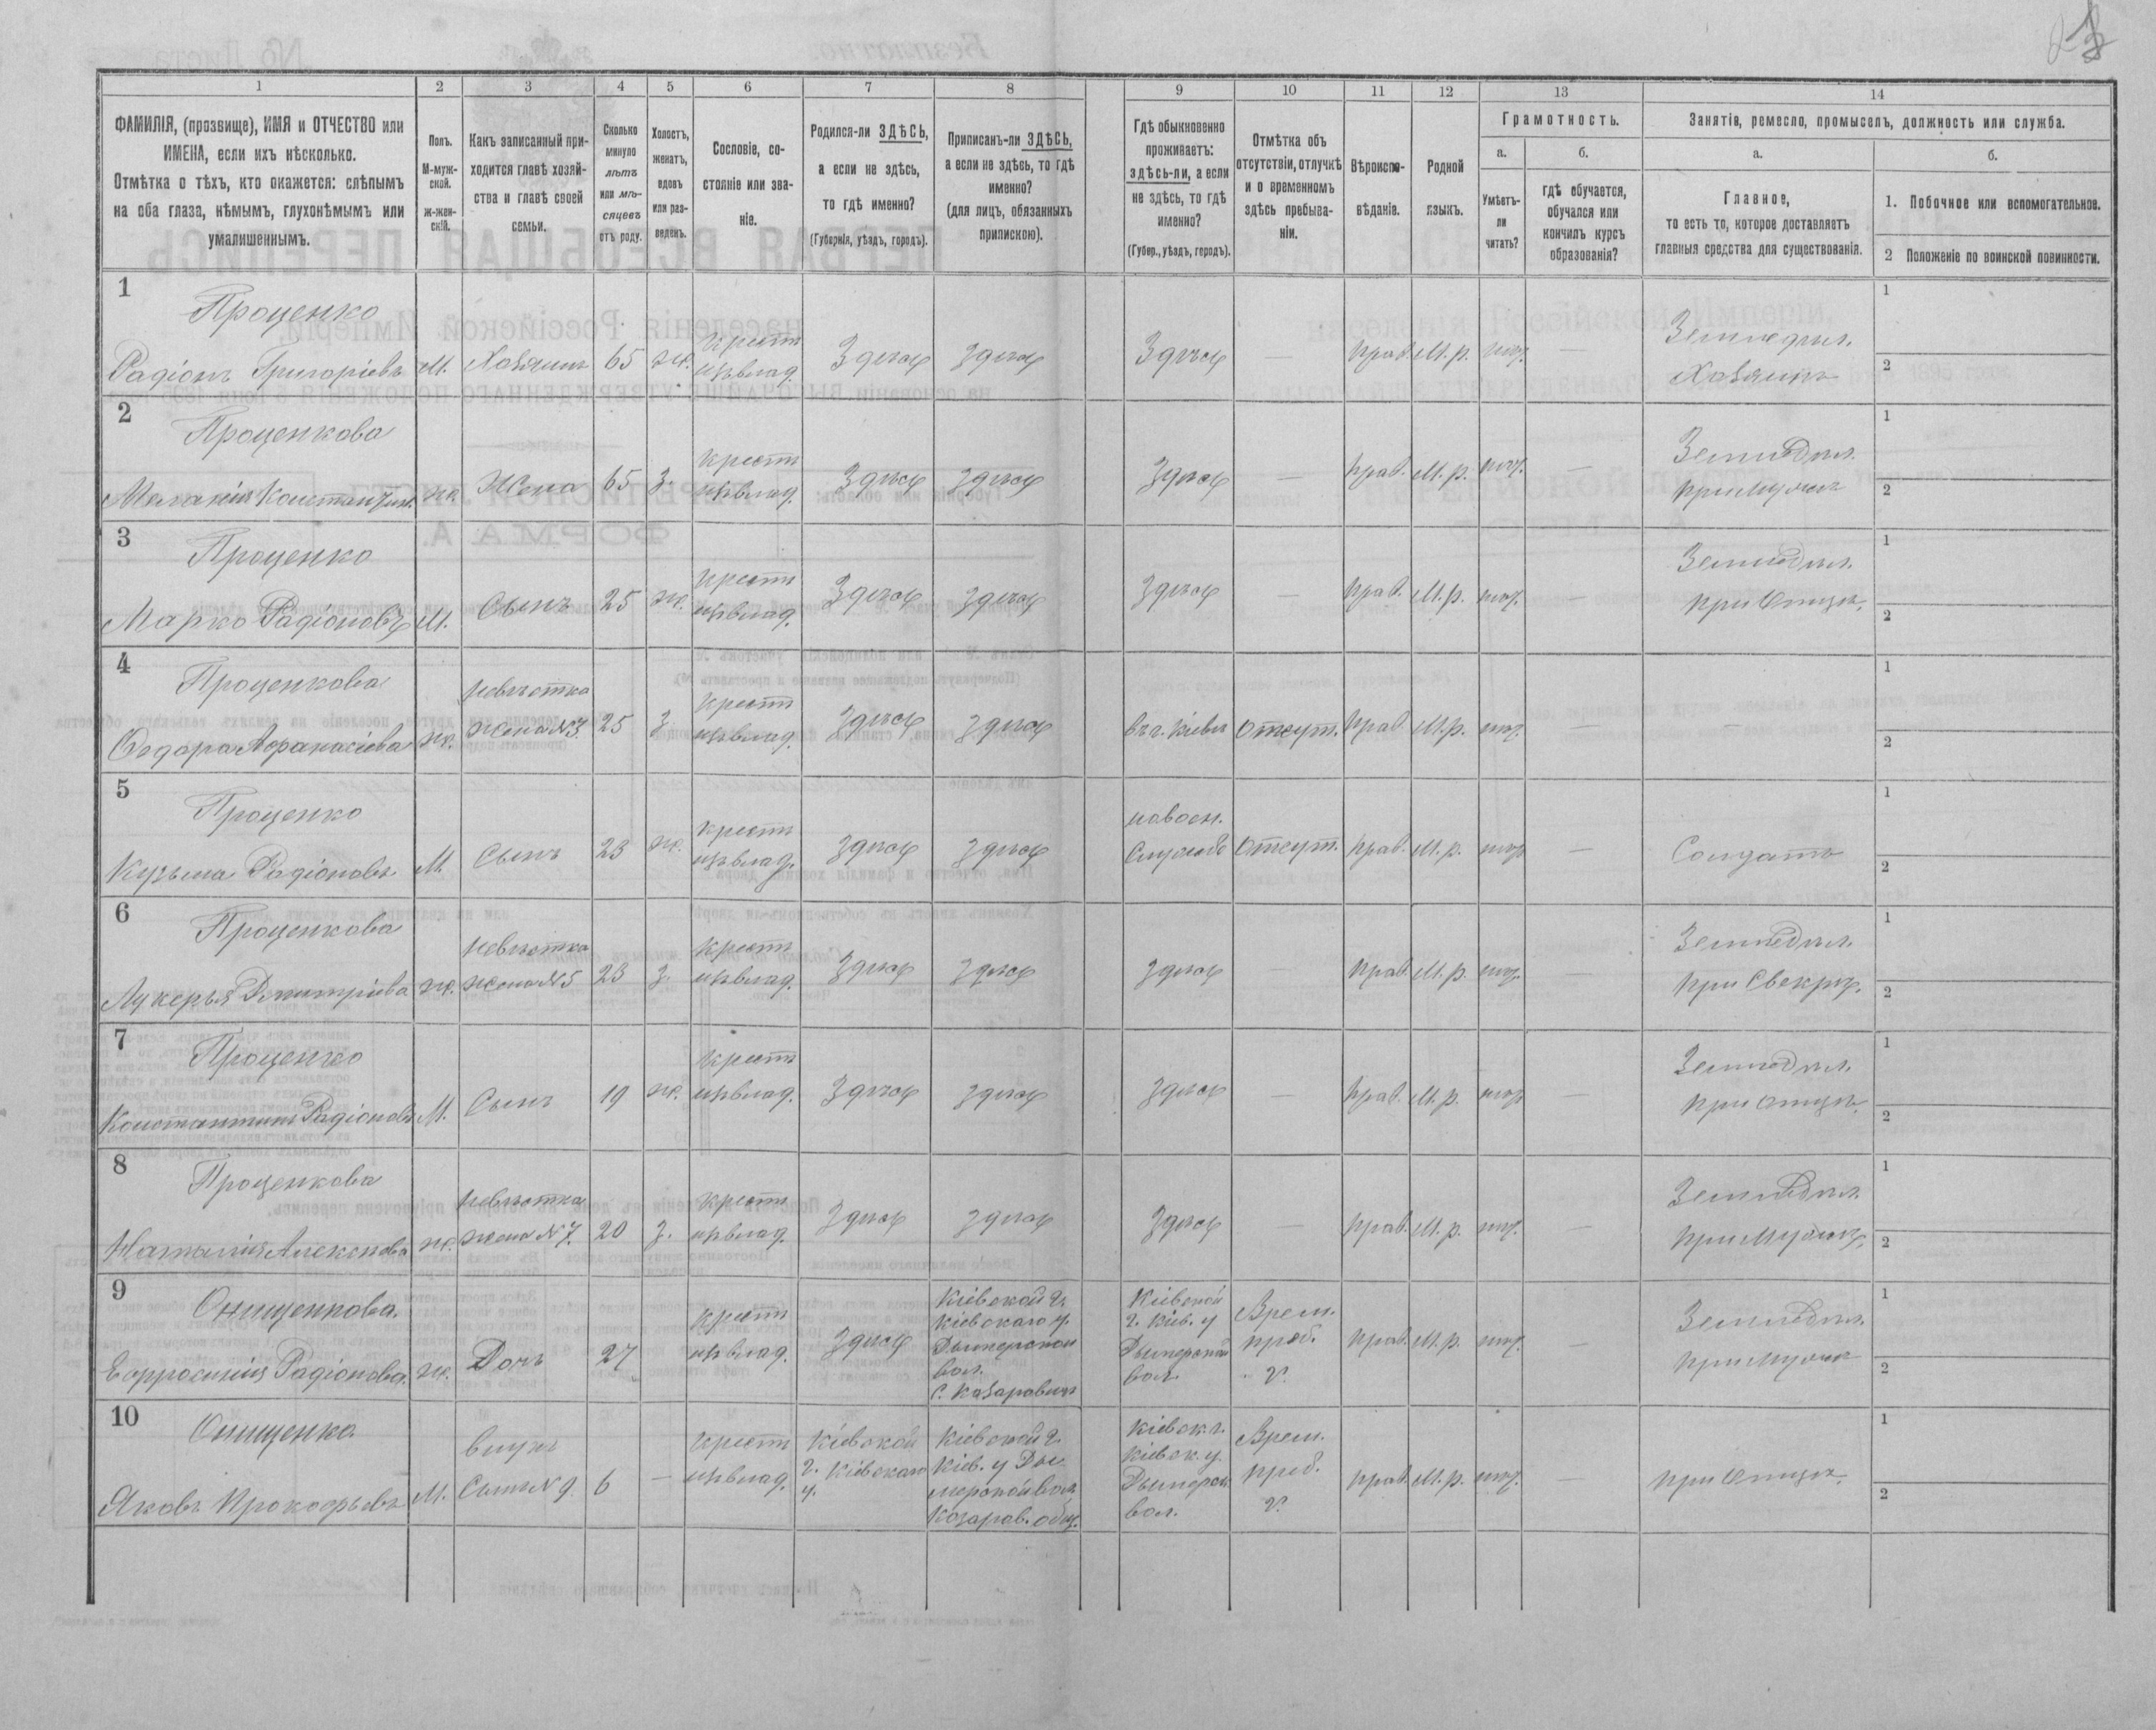 1 2 3 4 5 6 7 8 9 10 11 12 13 14
ФАМИЛІЯ, (прозвище), ИМЯ и ОТЧЕСТВО или
ИМЕНА, если ихъ нѣсколько.
Отмѣтка о тѣхъ, кто окажется: слѣпымъ
на оба глаза, нѣмымъ, глухонѣмымъ или
умалишеннымъ.
Полъ.
М-муж-
ской.
ж-жен-
скій.
Какъ записанный при-
ходится главѣ хозяй-
ства и главѣ своей
семьи.
Сколько
минуло
лѣтъ
или мѣ-
сяцевъ
отъ роду.
Холостъ,
женатъ,
вдовъ
или раз-
веденъ.
Сословіе, со-
стояніе или зва-
ніе.
Родился-ли ЗДѢСЬ,
а если не здѣсь,
то гдѣ именно?
(Губернія, уѣздъ, городъ).
Приписанъ-ли ЗДѢСЬ,
а если не здѣсь, то гдѣ
именно?
(для лицъ, обязанныхъ
припискою).
Гдѣ обыкновенно
проживаетъ:
здѣсь-ли, а если
не здѣсь, то гдѣ
именно?
(Губер., уѣздъ, городъ).
Отмѣтка объ
отсутствіи, отлучкѣ
и о временномъ
здѣсь пребыва-
ніи.
Вѣроиспо-
вѣданіе.
Родной
языкъ.
Грамотность.
а.
Умѣетъ-
ли
читать?
б.
гдѣ обучается,
обучался или
кончилъ курсъ
образованія?
Занятія, ремесло, промыселъ, должность или служба.
а.
Главное,
то есть то, которое доставляетъ
главныя средства для существованія.
б.
1. Побочное или вспомогательное.
2 Положеніе по воинской повинности.
1
Проценко
Радіонъ Григоріевъ
М. Хозяинъ 65 ж.
крест.
изъ влад.
Здѣсь здѣсь Здѣсь — прав. М. р. —
Земледѣл.
Хозяинъ
1
2
2
Проценкова
Меланія Константин.
ж. Жена 65 з.
крест.
изъ влад.
Здѣсь здѣсь Здѣсь — прав. М. р. —
Земледѣл.
при мужѣ
1
2
3
Проценко
Марко Радіоновъ
М. Сынъ 25 ж.
крест.
изъ влад.
Здѣсь здѣсь Здѣсь — прав. М. р. —
Земледѣл.
при отцѣ.
1
2
4
Проценкова
Ѳедора Афанасіева
ж.
невѣстка
жена №3.
25 з.
крест.
изъ влад.
Здѣсь здѣсь въ г. Кіевѣ Отсут. прав. М. р. — —
1
2
5
Проценко
Кузьма Радіоновъ
М. Сынъ 23 ж.
крест.
изъ влад.
Здѣсь здѣсь
на воен.
службѣ
Отсут. прав. М. р. —
Солдатъ
1
2
6
Проценкова
Лукерья Дмитріева
ж.
невѣстка
жена №5
23 з.
крест.
изъ влад.
Здѣсь здѣсь здѣсь — прав. М. р. —
Земледѣл.
при Свекрѣ.
1
2
7
Проценко
Константинъ Радіоновъ
М. Сынъ 19 ж.
крест.
изъ влад.
Здѣсь здѣсь здѣсь — прав. М. р. —
Земледѣл.
при отцѣ.
1
2
8
Проценкова
Наталія
ж.
невѣстка
жена №7.
20 з.
крест.
изъ влад.
Здѣсь здѣсь Здѣсь — прав. М. р. —
Земледѣл.
при мужѣ.
1
2
9
Онищенкова.
Ефросинія Радіонова.
ж. Дочь 27
крест.
изъ влад.
Здѣсь
Кіевской г.
Кіевскаго у.
Дымерской
вол.
С. Казаровичъ
Кіевской
г. Кіев. у
Дымерской
вол.
Врем.
преб.
прав. М. р. —
Земледѣл.
при мужѣ
1
2
10
Онищенко
Яковъ Прокофьевъ
М.
внукъ
Сынъ №9.
6 —
крест.
изъ влад.
Кіевской
г. Кіевскаго
у.
Кіевской г.
Кіев. у Ды-
мерской вол.
Козаров. общ.
Кіевск. г.
Кіевск. у.
Дымерск.
вол.
Врем.
преб.
прав. М. р. —
при отцѣ.
1
2